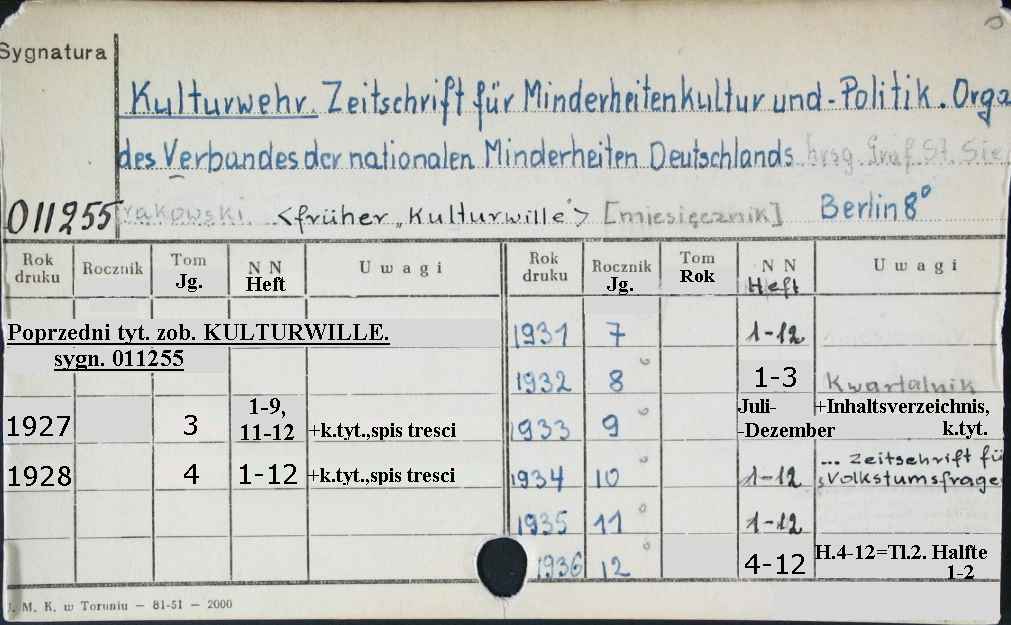 Sygnatura
Kulturwehr. Zeitschrift für Minderheitenkultur und-Politik. Orga
des Verbandes der nationalen Minderheiten Deutschlands hrsg. Graf St. Sie
011255 rakowski. <früher „Kulturwille"> [miesięcznik] Berlin 8°
Rok druku Rocznik Tom Jg. N N Heft Uwagi Rok druku Rocznik Jg. Tom Rok N N Heft Uwagi
Poprzedni tyt. zob. KULTURWILLE. 1931 7 1-12
sygn. 011255
1932 8° 1-3 Kwartalnik
1927 3 1-9, 11-12 +k.tyt.,spis tresci 1933 9° Juli- -Dezember +Inhaltsverzeichnis, k.tyt.
1928 4 1-12 +k.tyt.,spis tresci 1934 10° 1-12 ... Zeitschrift fü Volkstumsfrage
1935 11° 1-12
1936 12° 4-12 H.4-12=Tl.2. Halfte 1-2
J. M. K. w Toruniu — 81-51 — 2000